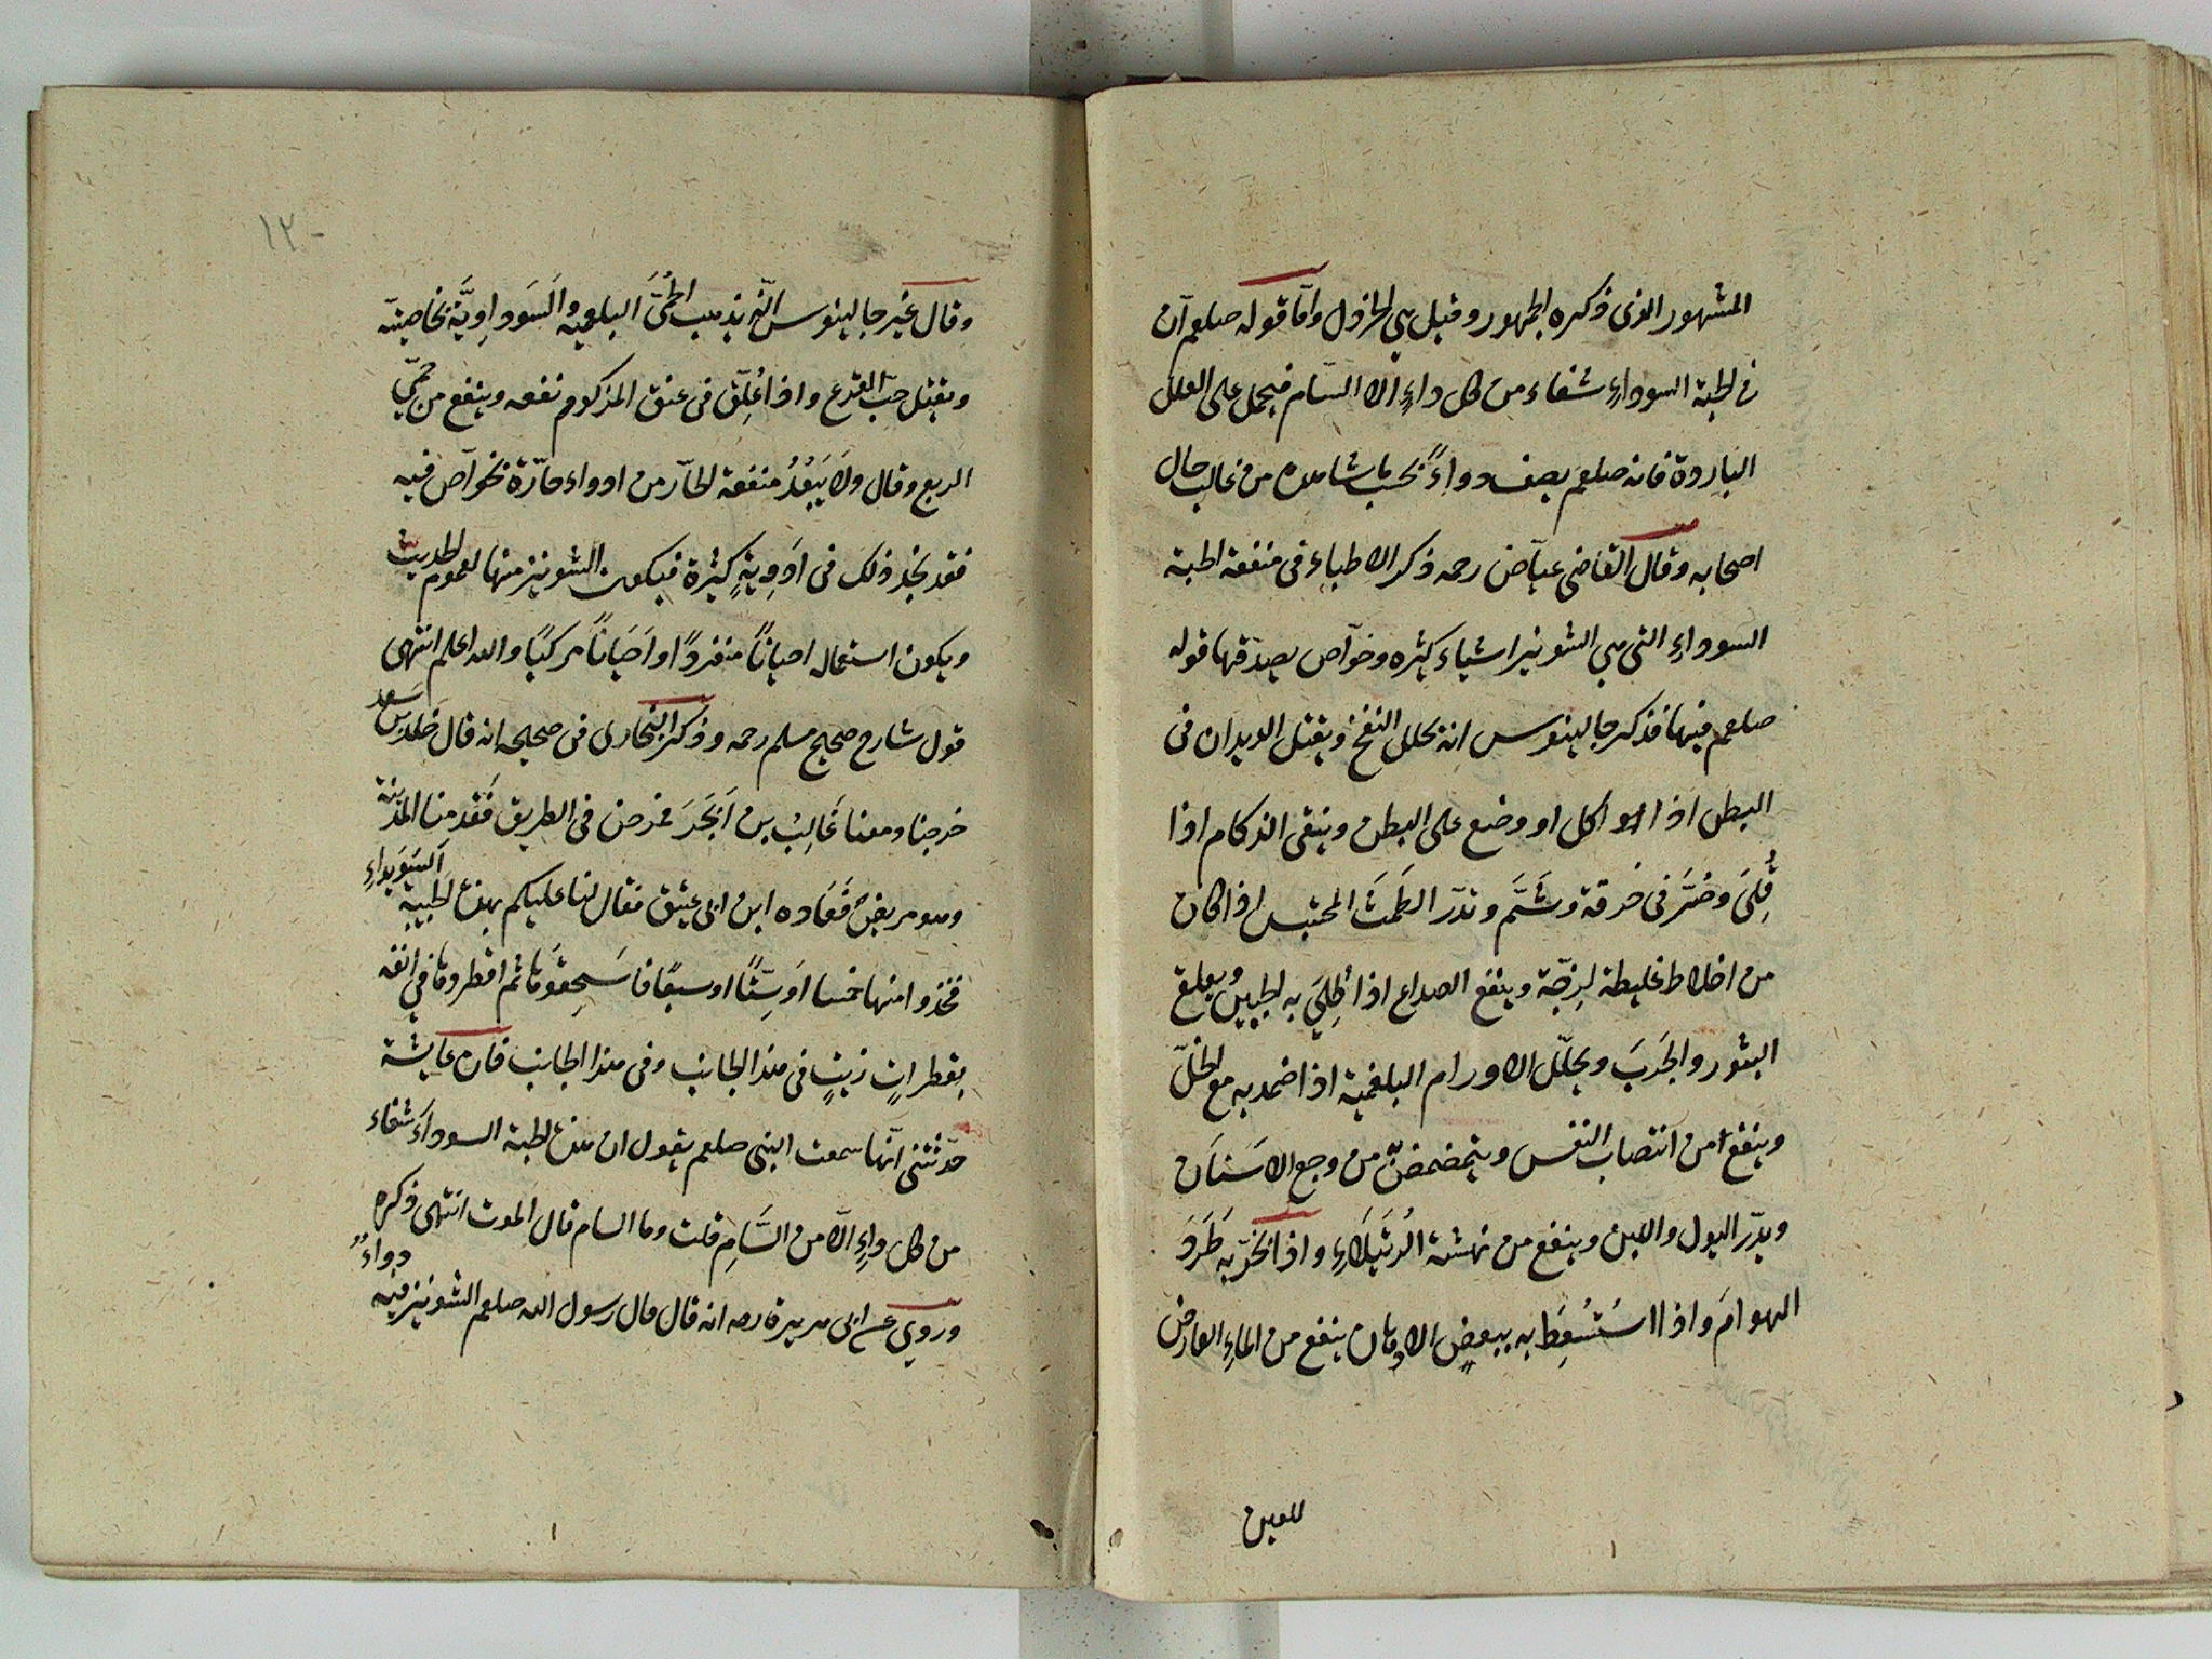 المشهور الذى ذكره الجمهور وقيل هي الخردل وامّا قوله صلعم انّ
فى الحبة السوداءِ شفاء من كل داءٍ الا السّام فيحمل على العلل
الباردة فانه صلعم يصف دواءً بحسب ما شاهده من غالب حال
اصحابه وقال القاضى عيّاض رحمه ذكر الاطباء فى منفعة الحبة
السوداءِ التى هي الشونيز اشياء كثيره وخوآص يصدّقها قوله
صلعم فيها فذكر جالينوس انه يحلل النفخ ويقتل الديدان فى
البطن اذا اكل او وضع على البطن وينقى الزكام اذا
قُلِىَ وصُرَّ فى خرقة وشُمَّ وتدرّ الطَمَثَ المحتبس اذا كان
من اخلاط غليطة لزِجَة وينفع الصداع اذا طُلِيَ به الجبين ويقلع
البثور والجَرَبَ ويحلّل الاورام البلغمية اذا ضمد به مع الخلّ
وينفع من انتصاب النفس ويتمضمض من وجع الاسنَان
ويدرّ البول واللبن وينفع من نهشة الرُتَيْلَاءِ واذا بُخّر به طَرَدَ
الهوامَ واذا استُسْعِطَ به ببعضِ الادهان ينفع من الماءِ العارض
للعين
١٢
وقال غيْر جالينوس انّه يذهب الحُمّىَ البلغميه والسَوداوِيَّة بخاصيته
ويقتل حبّ القرع واذا عُلِّقَ فى عنق المزكوم نفعه وينفع من حمّي
الربع وقال ولا يَبْعُدُ منفعة الحآر من ادواء حارّة بخوآص فيه
فقد نجد ذلك فى اَدوِيةٍ كثيرة فيكون الشونيز منها لعموم الحديث
ويكون استعماله احياناً منفردًا او اَحيَاناً مركبًا والله اعلم انتهى
قول شارح صحيح مسلم رحمه وذكر البخارى فى صحيحه انه قال خالد بن سعد
خرجنا ومعنا غَالِبُ بن اَبْجَرَ فمرض فى الطريق فَقَدِمنا المدينة
وهو مريض فَعَاده ابن ابى عتيق فقال لنا عليكم بهذه الحبيبة السُّوَيداءِ
فخذوا منها خمسا اَو سِتًّا او سبعًا فاسَحِقُوها ثم اقطروها فى انفه
بقطراتٍ زيتٍ فى هذا الجانب وفى هذا الجانب فان عايشة
حدّثتنى انّها سمعت النبى صلعم يقول ان هذه الحبة السودآءَ شفاء
من كل داءٍ الّا من السَّامِ قلت وما السام قال الموت انتهى ذكره
وروي عن ابى هريرة رضه انه قال قال رسول الله صلعم الشونيز فيه دواءٌ